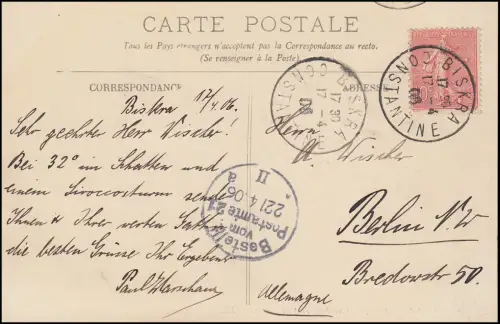 CARTE POSTALE
Tous les Pays étrangers n'acceptent pas la Correspondance au recto.
(Se renseigner à la Poste)
CORRESPONDANCE
ADRESSE
Biskra 17/4.06.
Sehr geehrter Herr Wischer!
Bei 32° im Schatten und
einem Siroccosturm sende
Ihnen & Ihrer werten Gattin
die besten Grüsse Ihr Ergebener
Paul
Herrn
A. Wischer
Berlin N.W
Bredowstr 50.
Allemagne
BISKRA
CONSTANTINE
17 -4
06
BISKRA
CONSTAN
17 30
17 -4
06
Bestellt
vom
Postamte 21
22/4.06
II